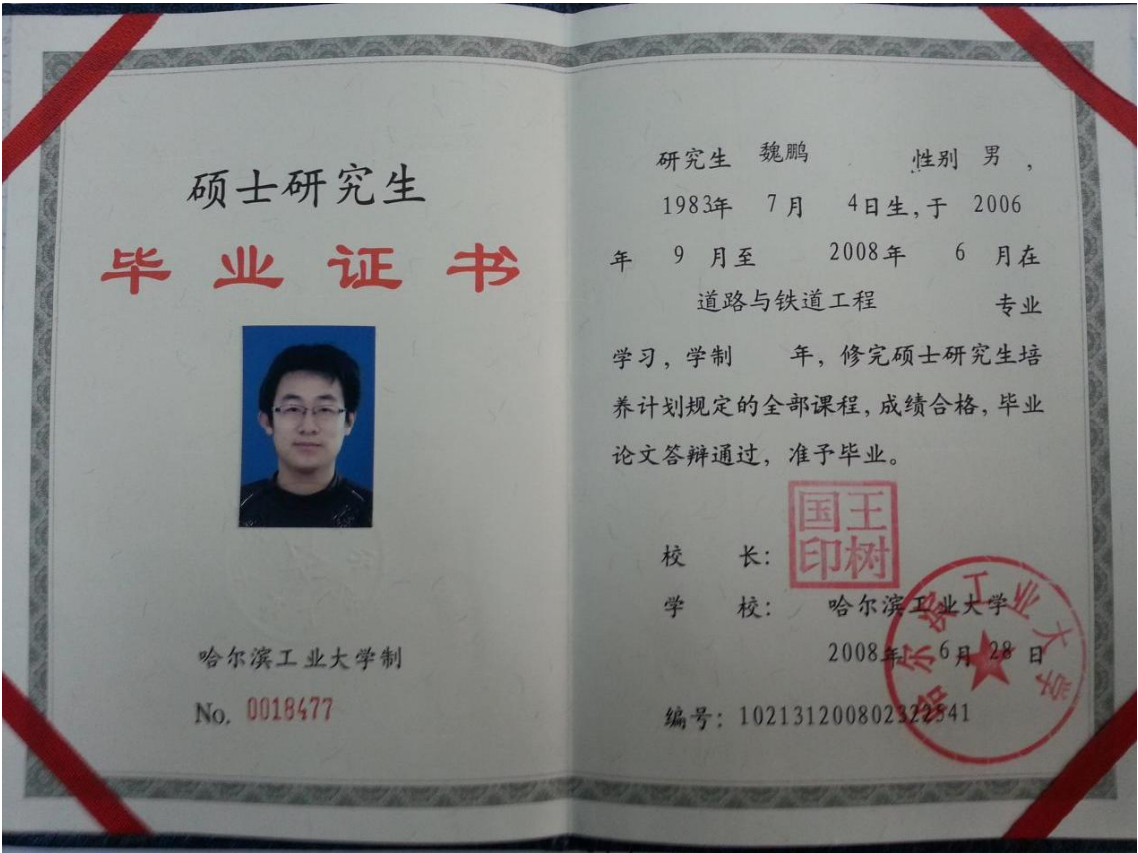 硕士研究生
毕业证书
哈尔滨工业大学制
No. 0018477
研究生 魏鹏 性别 男 ,
1983年 7月 4日生,于 2006
年 9 月至 2008年 6 月在
道路与铁道工程 专业
学习,学制 年,修完硕士研究生培
养计划规定的全部课程,成绩合格,毕业
论文答辩通过,准予毕业。
王树国印
校 长:
学 校: 哈尔滨工业大学
2008年 6月 28 日
编号:102131200802322541
哈尔滨工业大学